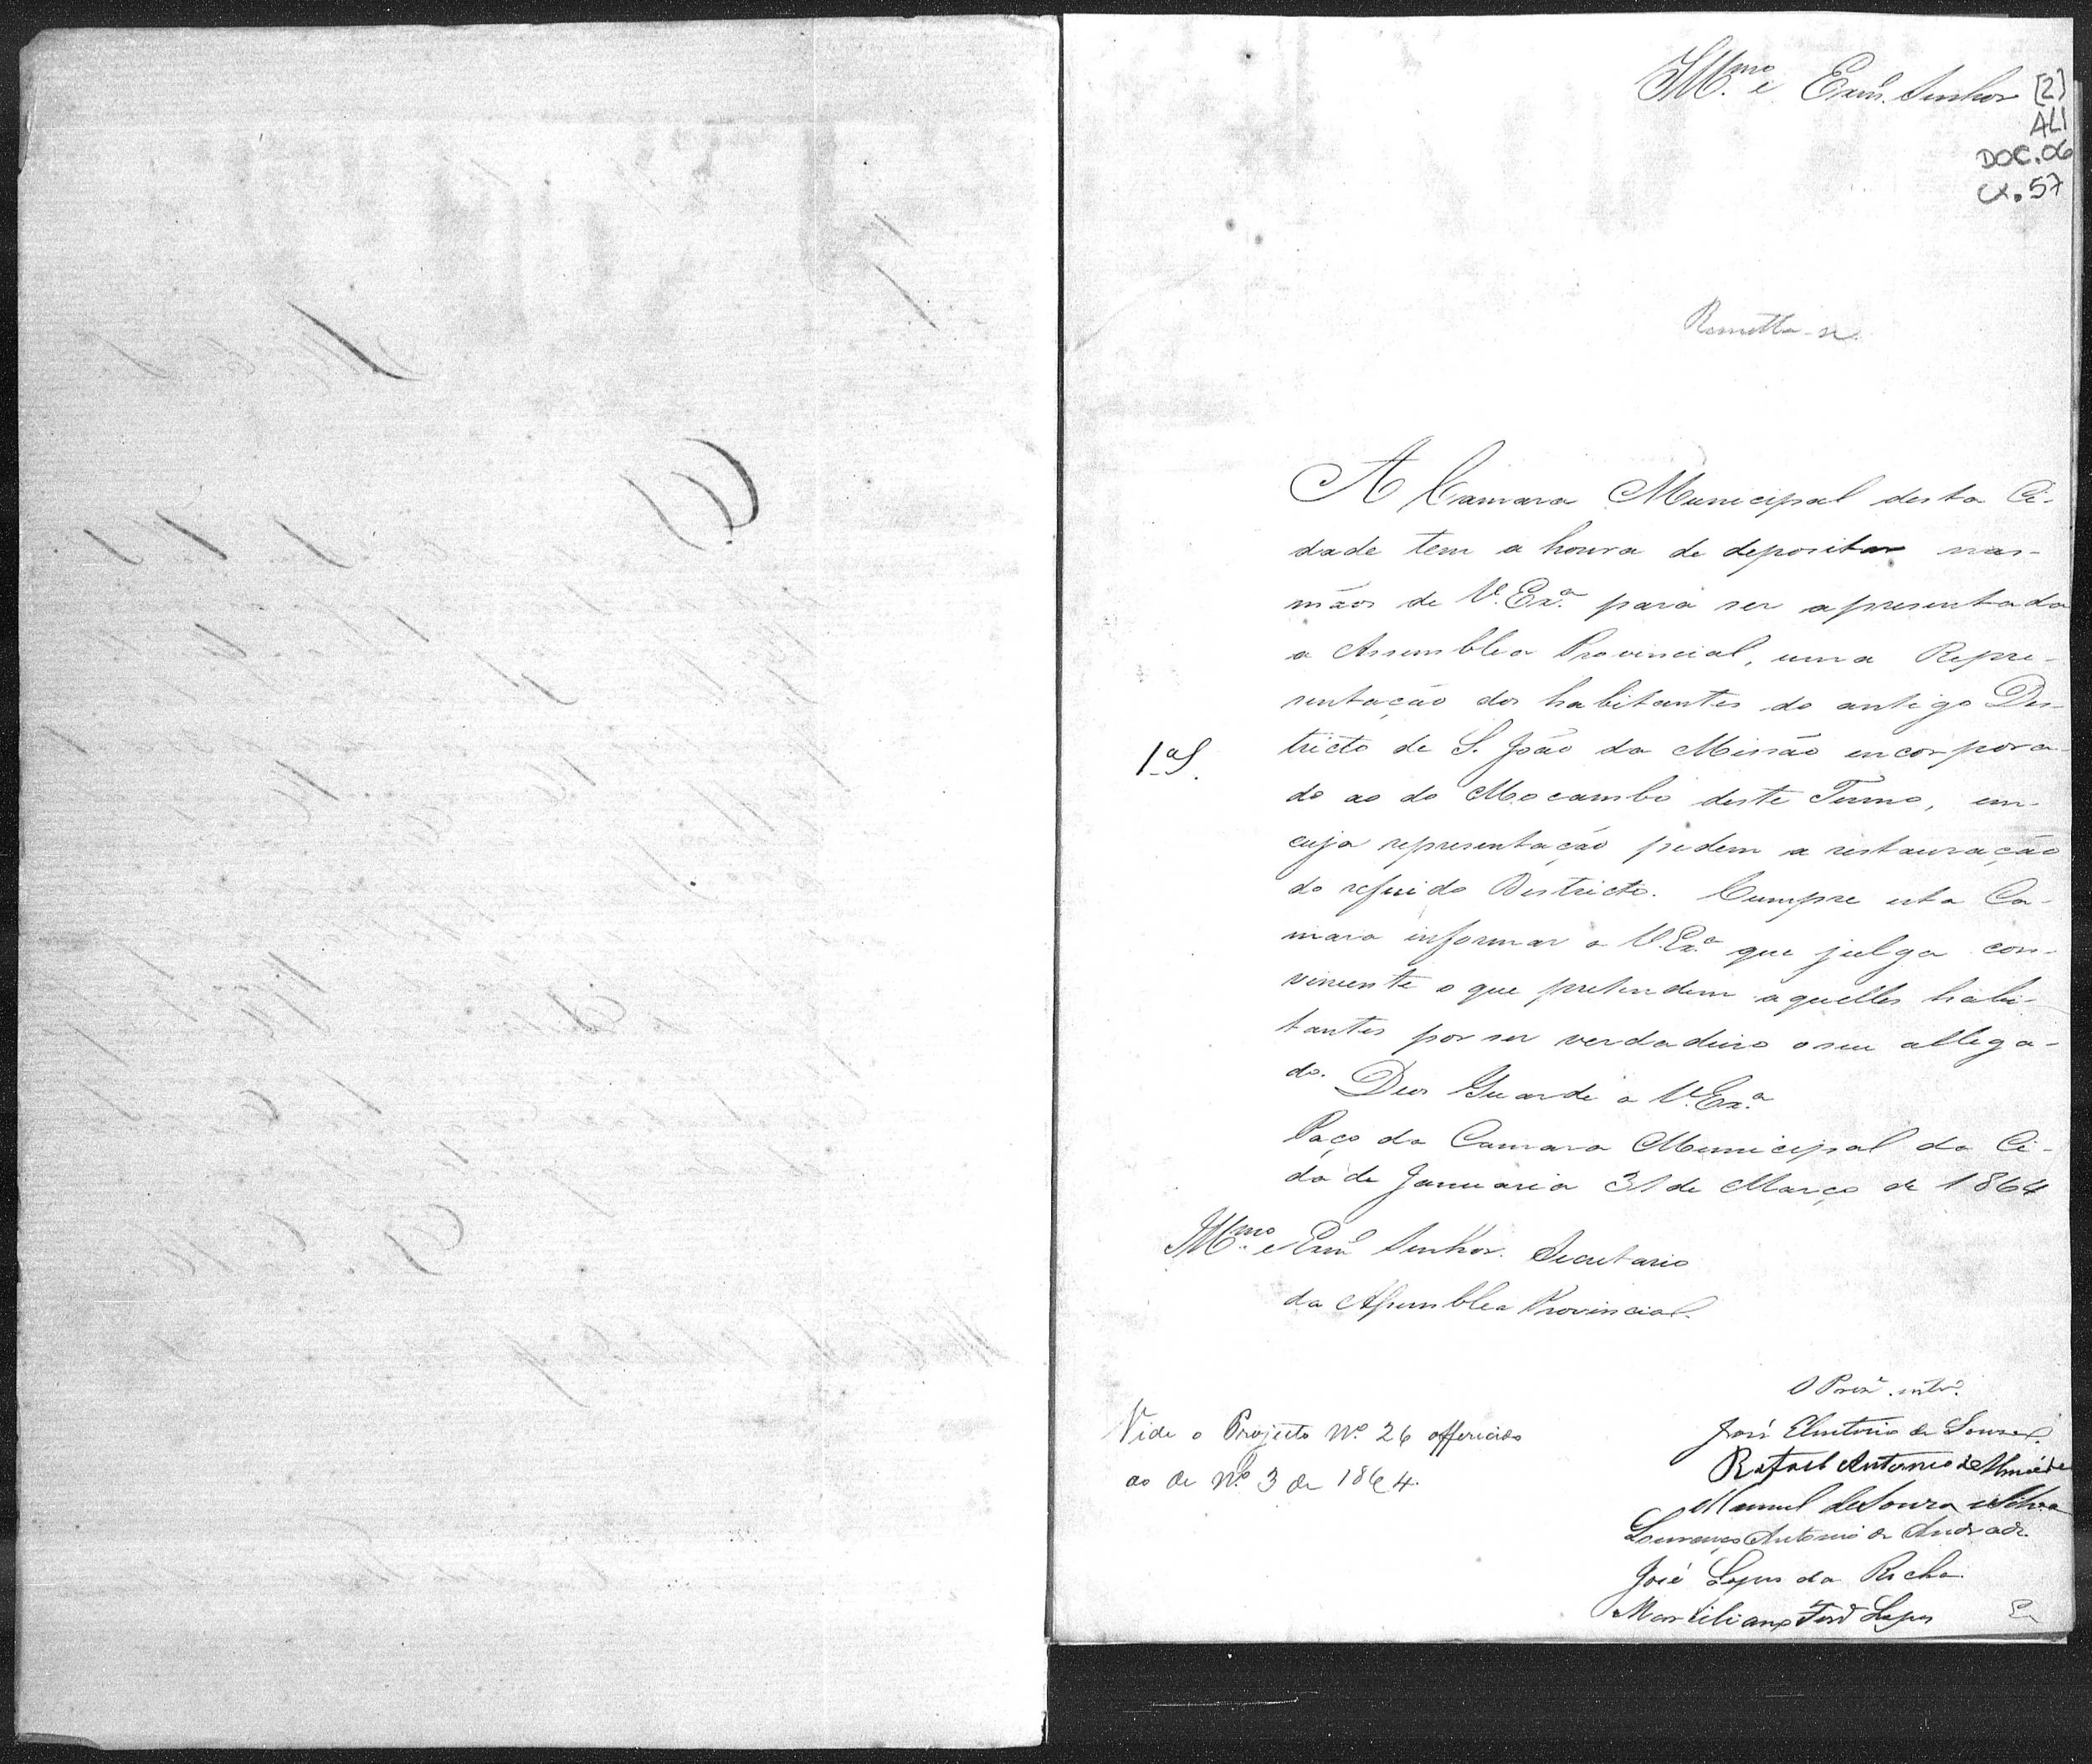 Illmo. e Exmo. Senhor
[2]
ALI
DOC. 06
Cx. 57
Remetta-se.
A Camara Municipal desta Ci-
dade tem a honra de depositar nas
mãos de V. Exa. para ser apresentada
a Assemblea Provincial, uma Repre-
sentação dos habitantes do antigo Des-
tricto de S. João da Missão encorpora-
do ao do Mocambo deste Termo, em
cuja representação pedem a restauração
do referido Destricto. Cumpre esta Ca-
mara informar a V. Exa. que julga con-
viniente o que pretendem aquelles habi-
tantes por ser verdadeiro o seu allega-
do. Deos Guarde a V. Exa.
Paço da Camara Municipal da Ci-
dade Januaria 31 de Março de 1864
1ª S.
Illmo. e Exmo. Senhor. Secretario
da Assemblea Provincial.
O Prezе. intо.
José Eleuterio de Souza.
Rafael Antonio de Almeida
Manuel de Souza e Silva
Lourenço Antonio de Andrade.
José Lopes da Rocha.
Marciliano Lopes
Vide o Projecto Nº 26 offericido
ao de Nº 3 de 1864.